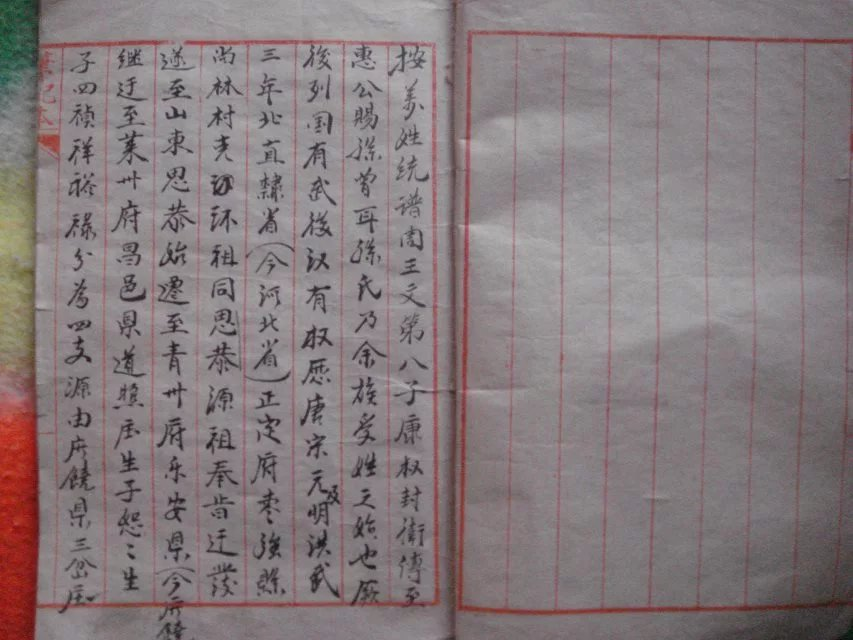 按萬姓统谱周王文第八子康叔封衛傳至
惠公賜孫曽耳孫氏乃余族受姓之始也厥
後列国有武後汉有权歷唐宋元及明洪武
三年北直隸省(今河北省)正定府枣强縣
尚林村 环祖同思恭源祖奉旨迁發
遂至山東思恭始遷至青州府乐安県(今广饒
继迁至莱州府昌邑県道照庄生子恕〻生
子四禎祥裕禄分為四支源由广饒県三岔庄